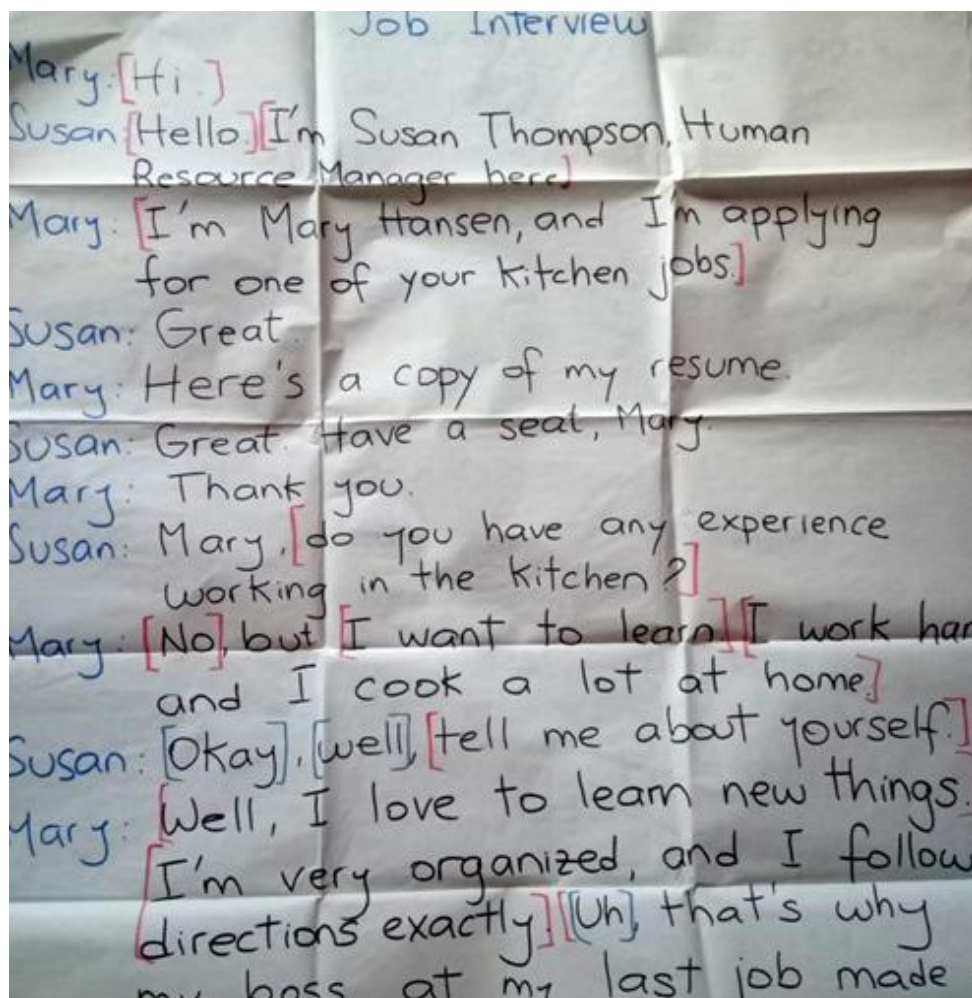 Job Interview
Mary: [Hi.]
Susan [Hello.] [I'm Susan Thompson, Human
Resource Manager here]
Mary: [I'm Mary Hansen, and I'm applying
for one of your kitchen jobs.]
Susan: Great.
Mary: Here's a copy of my resume.
Susan: Great. Have a seat, Mary.
Mary: Thank you.
Susan: Mary, [do you have any experience
working in the kitchen?]
Mary: [No], but [I want to learn] [I work har
and I cook a lot at home.]
Susan: [Okay], [well], [tell me about yourself.]
Mary: [Well, I love to learn new things.
[I'm very organized, and I follow
directions exactly] [[Uh], that's why
my boss at my last job made